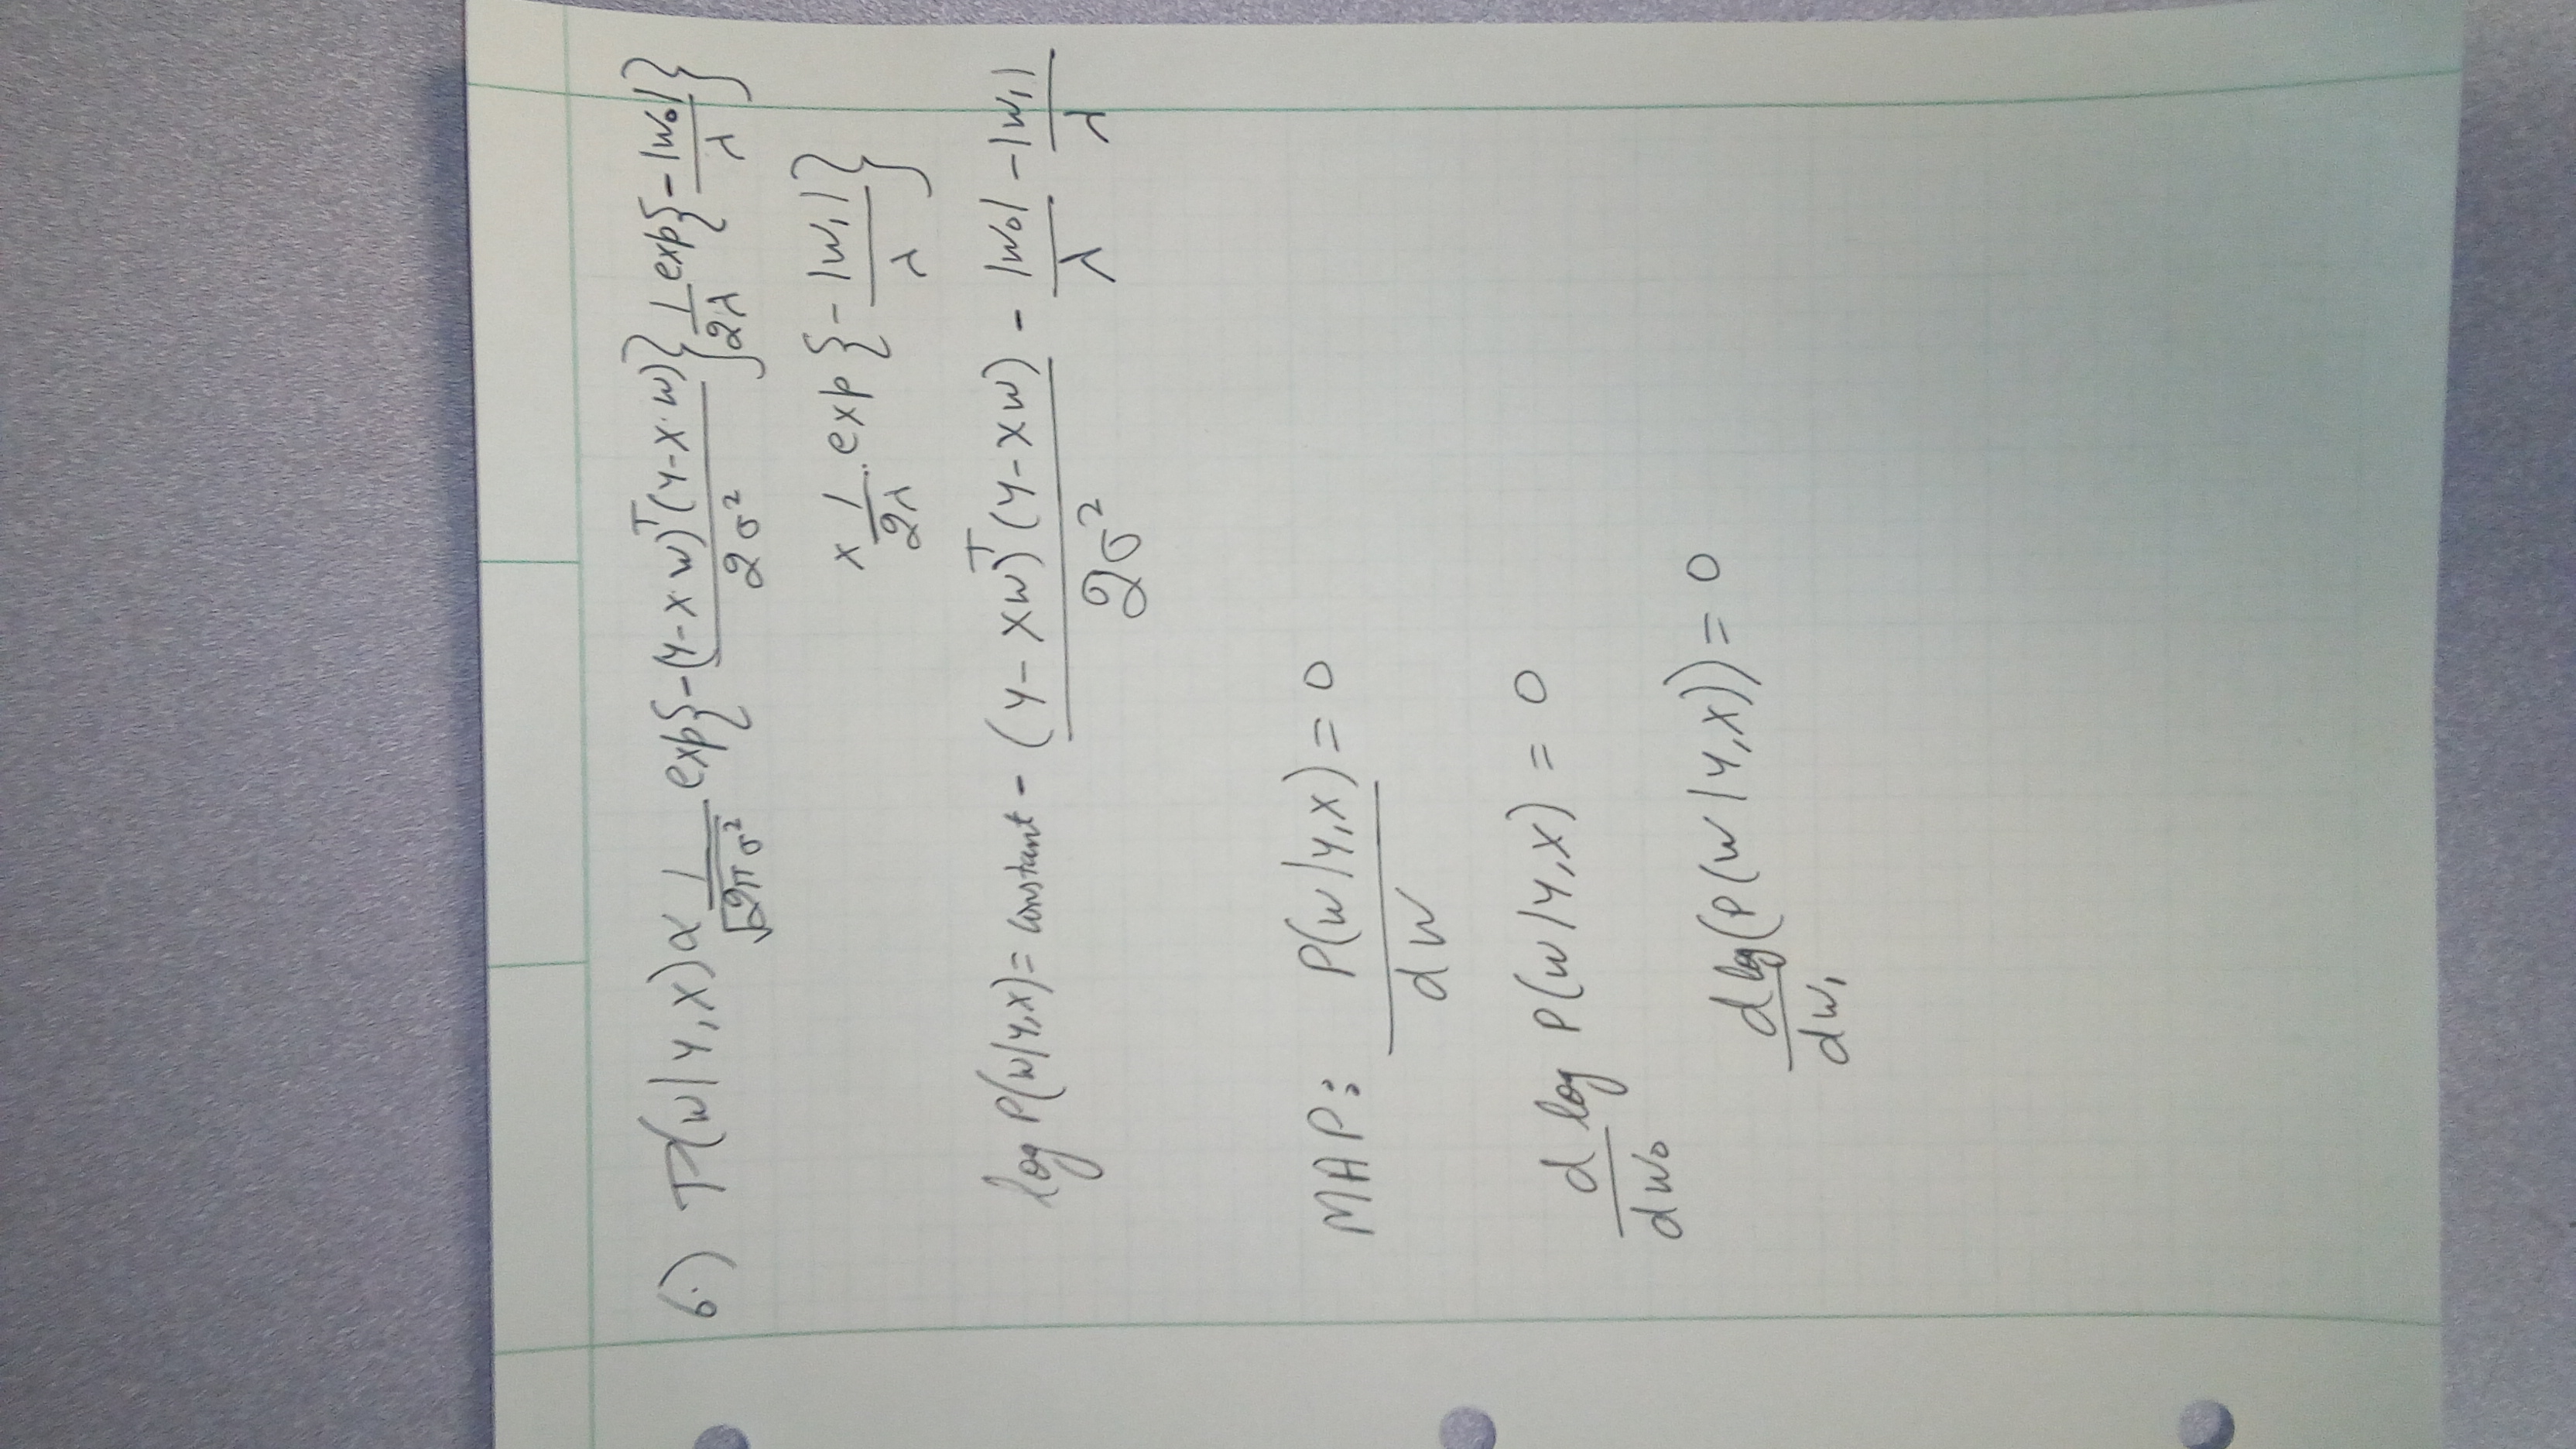 6.) P(w|y,x) ∝ 1/√(2πσ²) exp{-(y-x·w)ᵀ(y-x·w)/2σ²} 1/2λ exp{-|w₀|/λ}
x 1/2λ exp{-|w₁|/λ}
log P(w|y,x) = constant - (y-xw)ᵀ(y-xw)/2σ² - |w₀|/λ - |w₁|/λ
MAP: P(w|y,x)/dw = 0
d/dw₀ log P(w|y,x) = 0
d/dw₁ log(P(w|y,x)) = 0